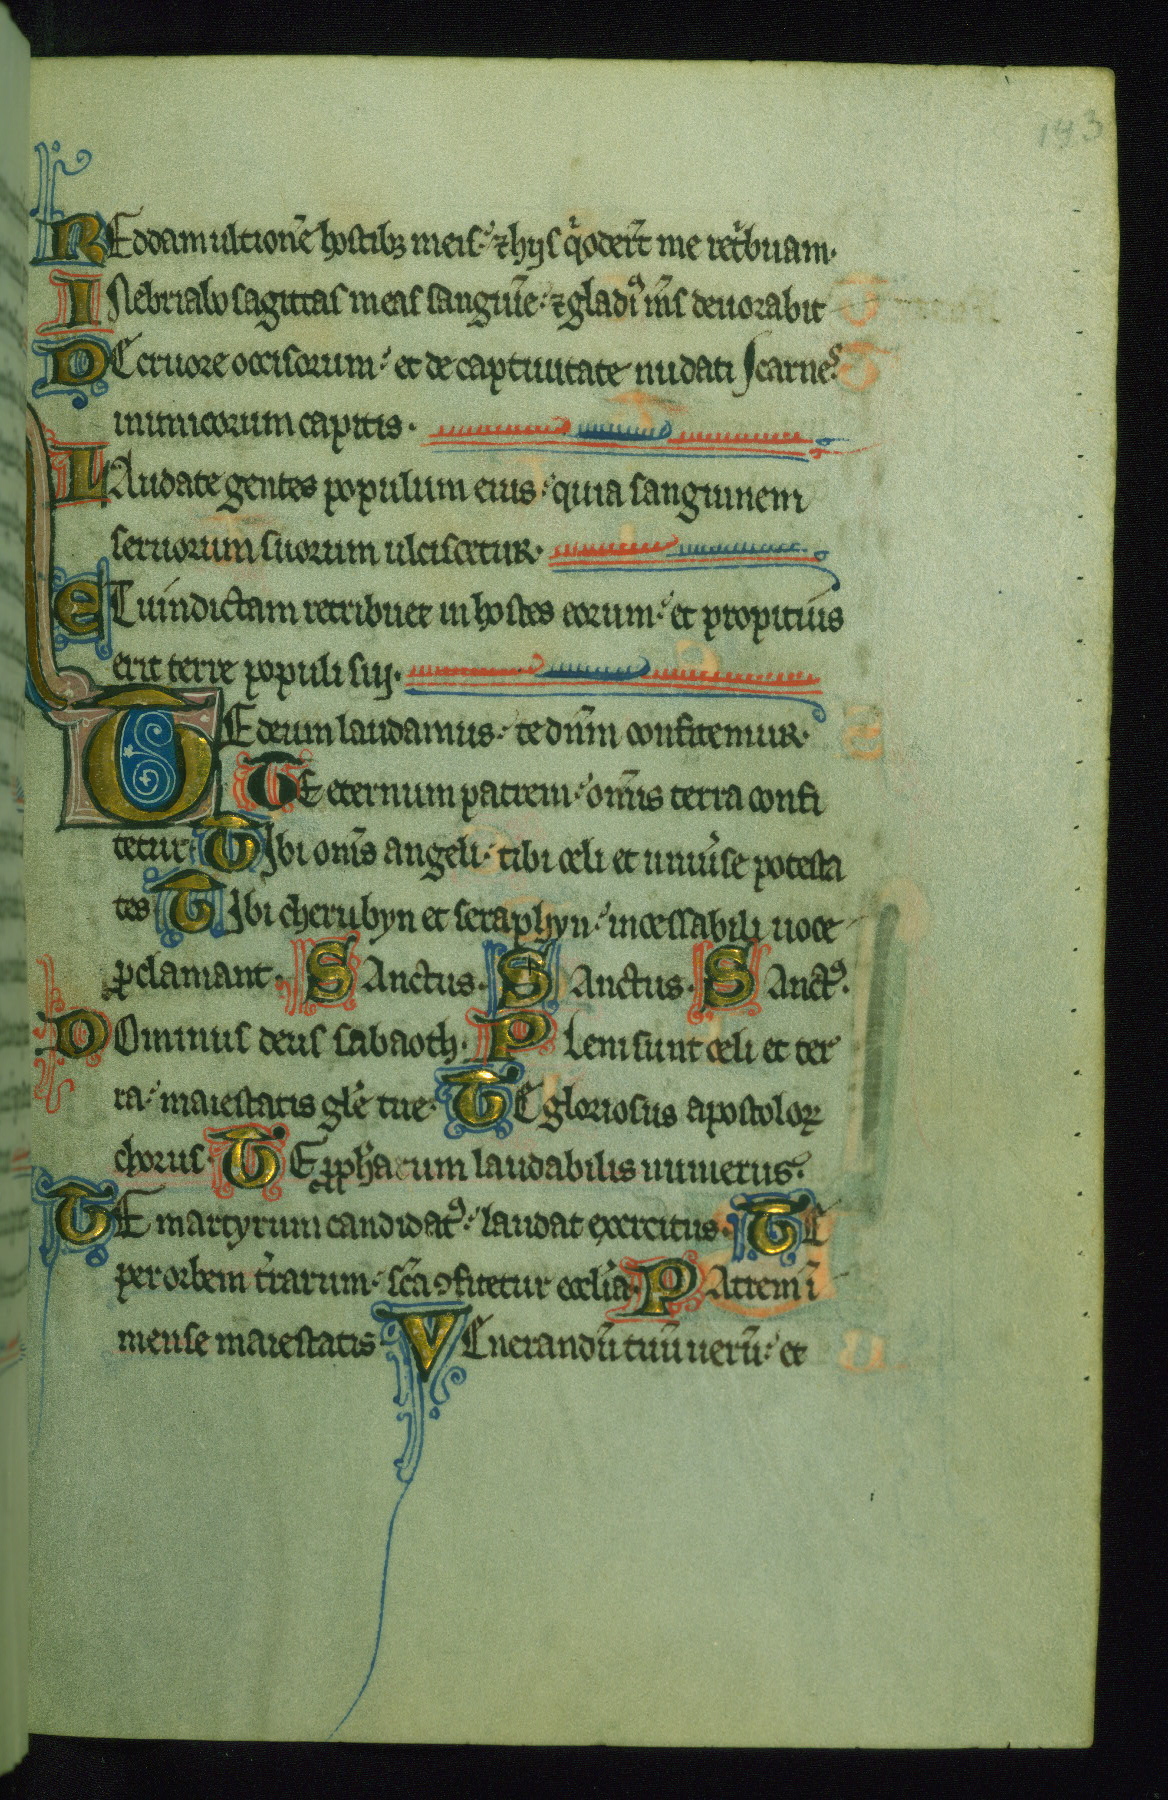 193
REddam ultionē hostibȝ meis: ⁊ hijs q̄ oder̄t me ret̄buam.
INebriabo sagittas meas sanguīe: ⁊ gladiꝰ m̄s deuorabit
DE cruore occisorum: et de captiuitate nudati carnes:
inimicorum capitis.
LAudate gentes populum eius: quia sanguinem
seruorum suorum ulciscetur.
ET uindictam retribuet in hostes eorum: et propitius
erit terre populi sui.
TE deum laudamus: te dn̄m confitemur.
TE eternum patrem: om̄is terra confi
tetur. TIbi om̄s angeli: tibi celi et uniu̾se potesta
tes TIbi cherubyn et seraphyn: incessabili uoce
ꝓclamant. SAnctus. SAnctus. SAnctꝰ.
DOminus deus sabaoth. PLeni sunt celi et ter
ra: maiestatis gl̄e tue. TE gloriosus apostoloꝝ
chorus. TE ꝓph̄arum laudabilis numerus.
TE martyrum candidatꝰ: laudat exercitus. TE
per orbem t̾rarum: sc̄a ꝯfitetur eccl̄ia. PAtrem ī
mense maiestatis VEnerandū tuū uerū: et